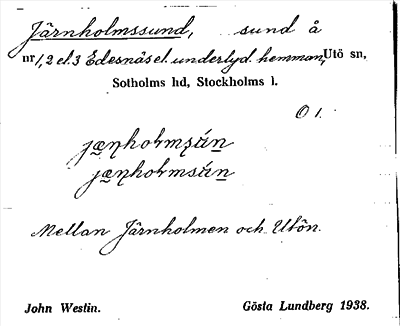 Järnholmssund, sund å
nr 1, 2 el. 3 Edesnäs el. underlyd. hemman, Utö sn,
Sotholms hd, Stockholms l.
O 1.
jæ̠ɳholmʂún̠
jæ̠ɳholmsún̠
Mellan Järnholmen och Utön.
John Westin. Gösta Lundberg 1938.